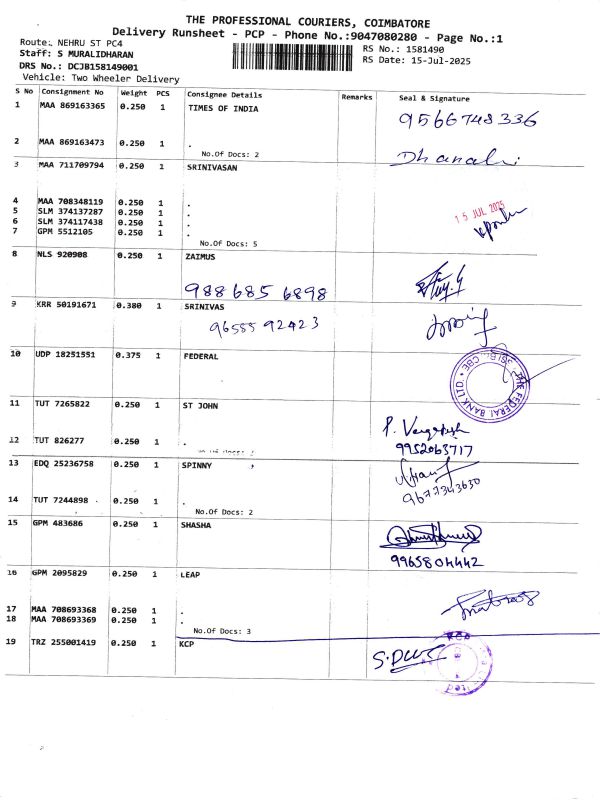 THE PROFESSIONAL COURIERS, COIMBATORE
Delivery Runsheet - PCP - Phone No.:9047080280 - Page No.:1
Route: NEHRU ST PC4
RS No.: 1581490
Staff: S MURALIDHARAN
RS Date: 15-Jul-2025
DRS No.: DCJB158149001
Vehicle: Two Wheeler Delivery
S No Consignment No Weight PCS Consignee Details Remarks Seal & Signature
1 MAA 869163365 0.250 1 TIMES OF INDIA
9566748336
2 MAA 869163473 0.250 1 .
No.Of Docs: 2
Dhanali
3 MAA 711709794 0.250 1 SRINIVASAN
4 MAA 708348119 0.250 1 .
5 SLM 374137287 0.250 1 .
15 JUL 2025
6 SLM 374117438 0.250 1 .
7 GPM 5512105 0.250 1 .
No.Of Docs: 5
8 NLS 920908 0.250 1 ZAIMUS
988685 6898
9 KRR 50191671 0.380 1 SRINIVAS
9655592423
10 UDP 18251551 0.375 1 FEDERAL
THE FEDERAL BANK LTD. CBE
11 TUT 7265822 0.250 1 ST JOHN
P. Vengatesh
12 TUT 826277 0.250 1 .
9952063717
13 EDQ 25236758 0.250 1 SPINNY
9677343630
14 TUT 7244898 0.250 1 .
No.Of Docs: 2
15 GPM 483686 0.250 1 SHASHA
9965804442
16 GPM 2095829 0.250 1 LEAP
17 MAA 708693368 0.250 1 .
18 MAA 708693369 0.250 1 .
No.Of Docs: 3
19 TRZ 255001419 0.250 1 KCP